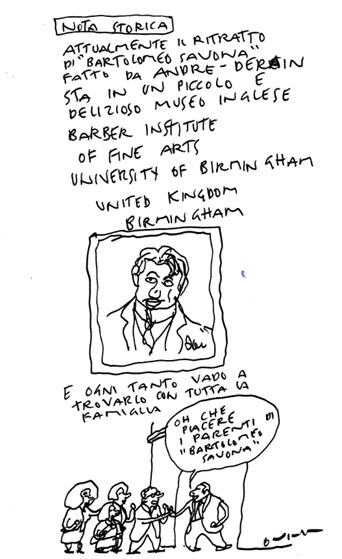 NOTA STORICA
ATTUALMENTE IL RITRATTO
DI "BARTOLOMEO SAVONA"
FATTO DA ANDRE-DERAIN
STA IN UN PICCOLO E
DELIZIOSO MUSEO INGLESE
BARBER INSTITUTE
OF FINE ARTS
UNIVERSITY OF BIRMINGHAM
UNITED KINGDOM
BIRMINGHAM
E OGNI TANTO VADO A
TROVARLO CON TUTTA LA
FAMIGLIA
OH CHE
PIACERE
I PARENTI DI
"BARTOLOMEO
SAVONA"